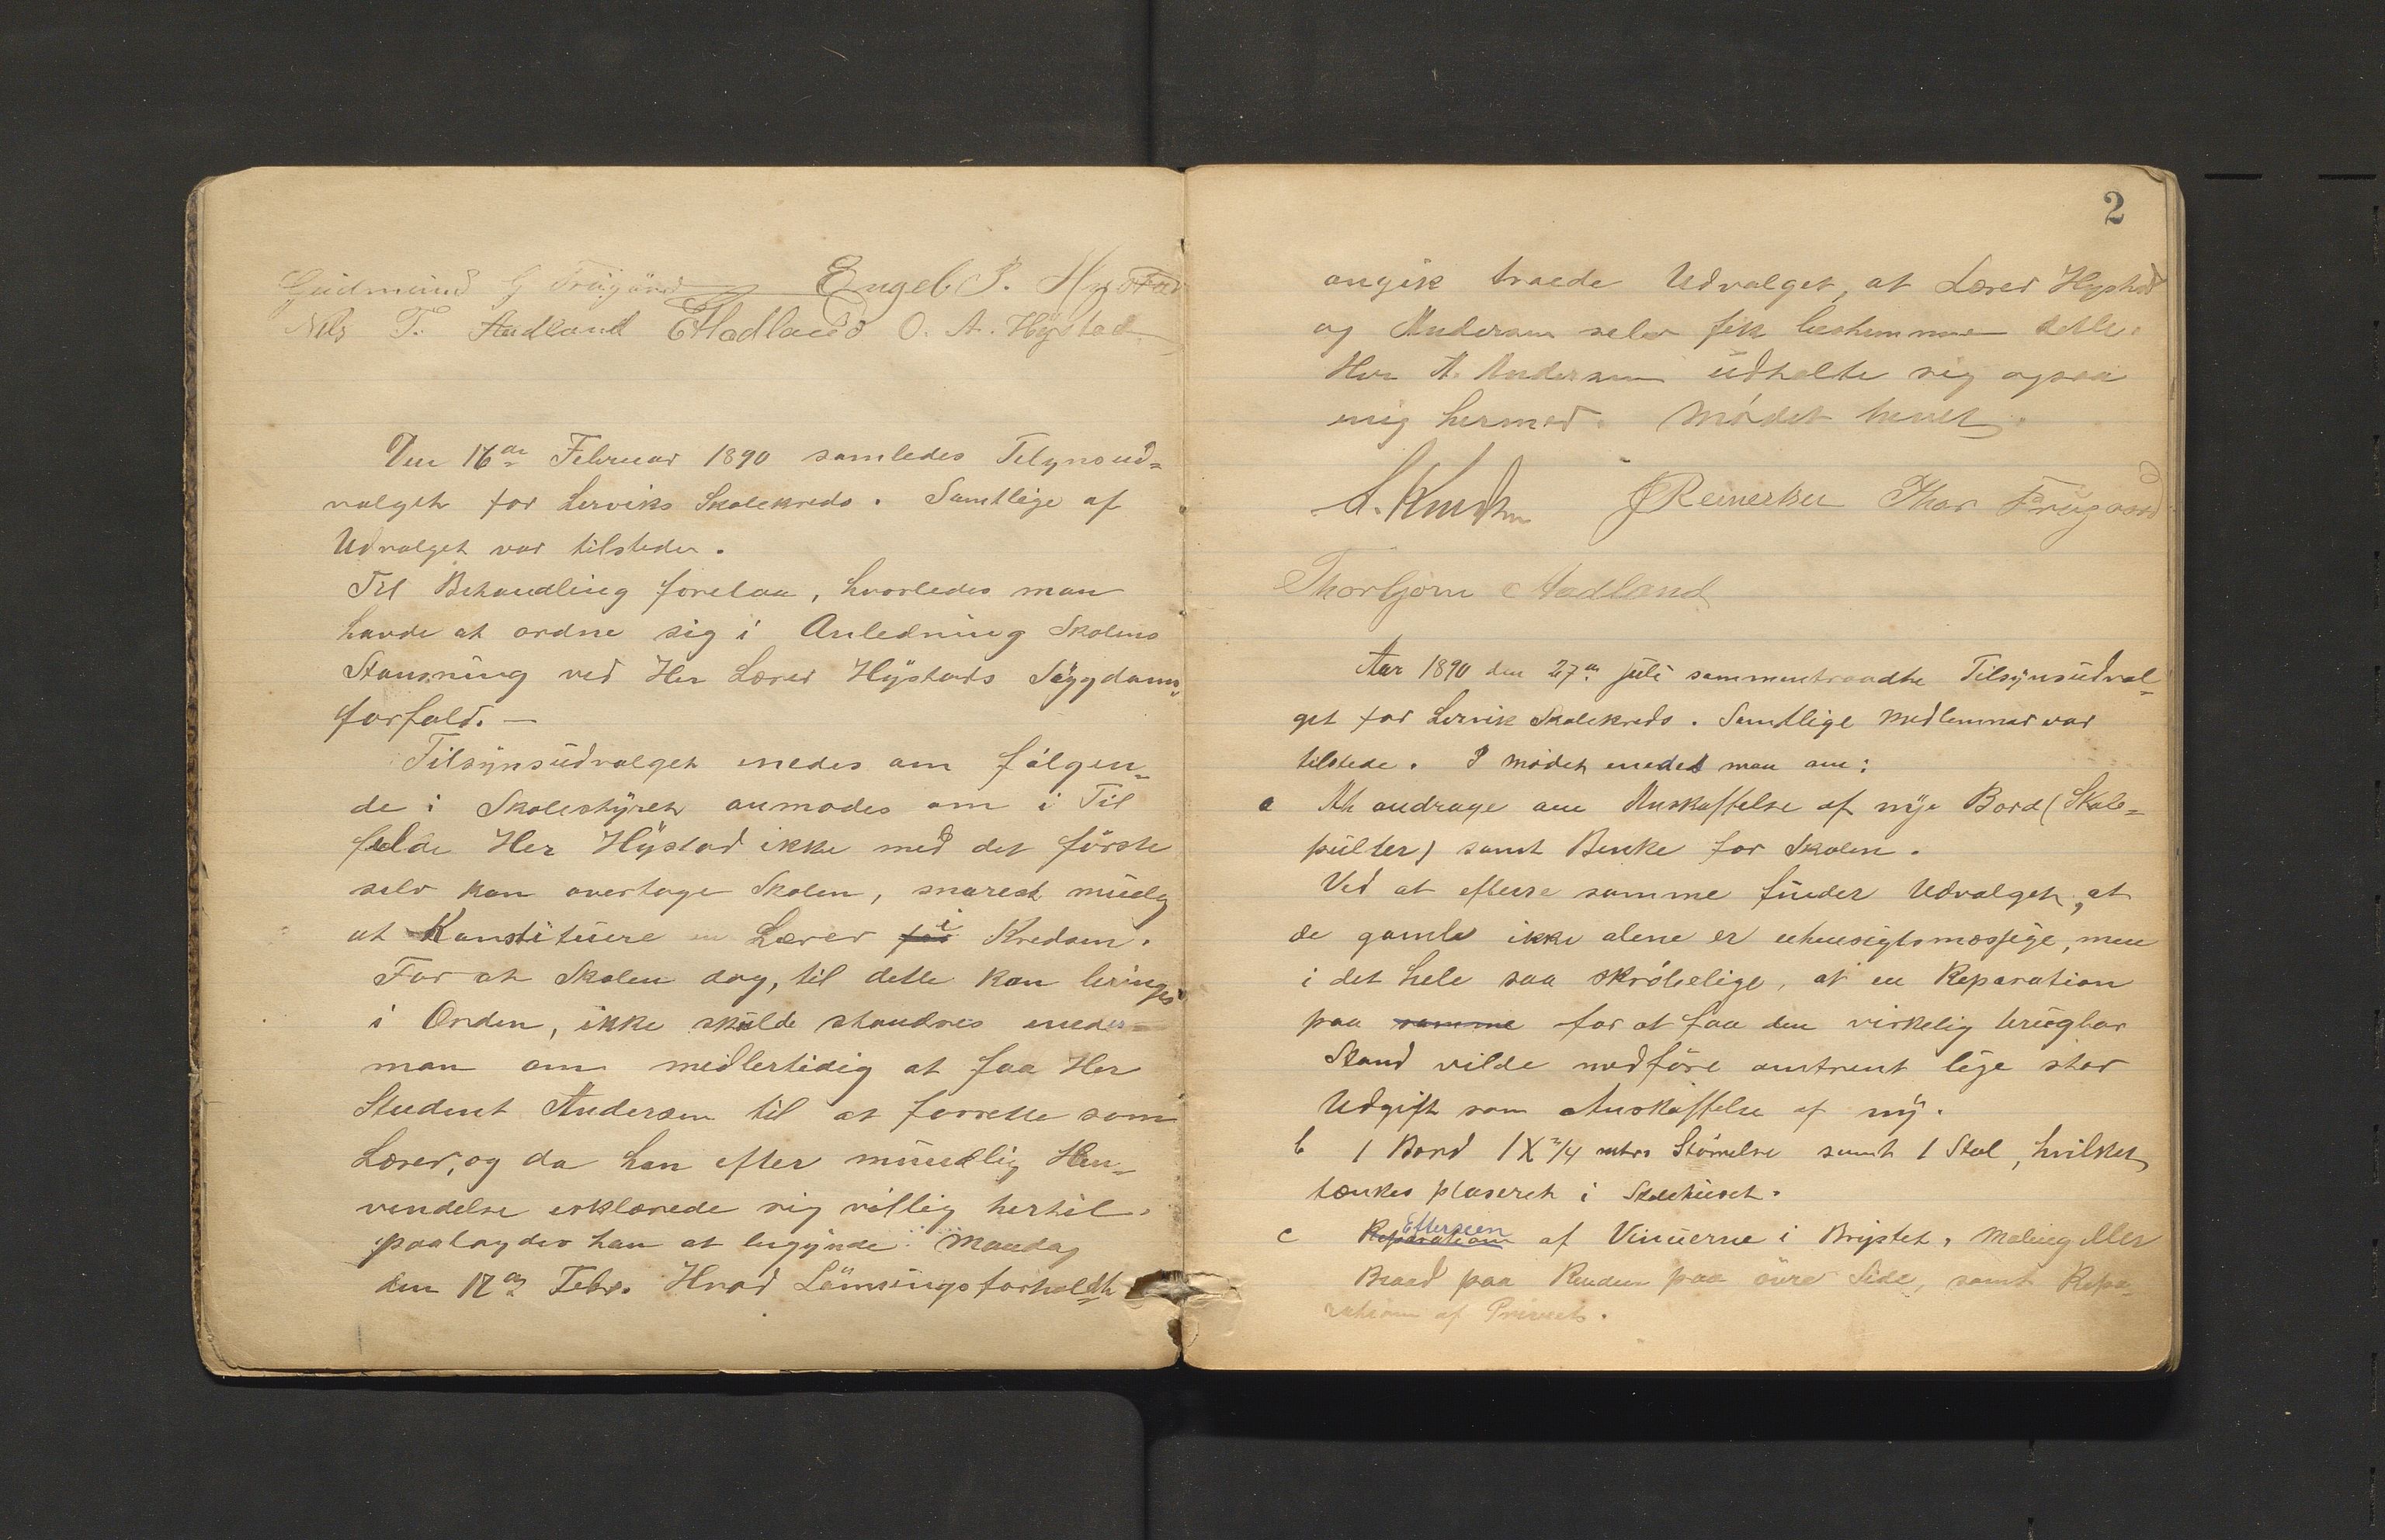 Gudmund G Frügård Engel S. Hystad
Nils T. Hadland E Hadland O. A. Hÿstad
Den 16de Februar 1890 samledes Tilsynsud=
valget for Lerviks Skolekreds. Samtlige af
Udvalget var tilsteder.
Til Behandling forelaa, hvorledes man
havde at ordne sig i Anledning Skolens
Stansning ved Her Lærer Hÿstads Sÿgdoms=
forfald. —
Tilsÿnsüdvalget enedes om følgen=
de i Skolestÿret anmodes om i Til
fælde Her Hÿstad ikke med det första
selv kan overtage Skolen, snarest muelg
at Konstitüere en Lærer for i Kredsen.
For at Skolen dog, til dette kan bringes
i Orden, ikke skulde standses enedes
man om midlertidig at faa Her
Student Andersen til at forrette som
Lærer, og da han efter mündlig Hen=
vendelse erklærede sig villig hertil.
paalagdes han at begÿnde Mandag
den 17de Febr. Hvad Lønningsforholdet
2
angik troede Udvalget, at Lærer Hystad
og Andersen selv fik bestemme dette.
Her A. Andersen üdtalte sig ogsaa
enig hermed. Mødet hevet.
A. Knudsen J Reinertsen Thor Frügaard
Thorbjørn Hadland
Aar 1890 den 27de juli sammentraadte Tilsÿnsüdval=
get for Lervik Skolekreds. Samtlige Medlemmer var
tilstede. I mødet enedes man om:
a At andrage om Anskaffelse af nÿe Bord (Skole=
pülter) samt Benke for Skolen.
Ved at efterse samme finder Udvalget, at
de gamle ikke alene er uhensigtsmæssige, men
i det hele saa skrøbelige, at en Reparation
paa samme for at faa den virkelig brügbar
Stand vilde medføre omtrent lige stor
Udgift som Anskaffelse af nÿ.
b 1 Bord 1 X 3/4 mtrs Størrelse samt 1 Stol, hvilket
tænkes plaseret i Skolehuset.
c Reparation Efterseen af Vinuerne i Brystet, Maling eller
Beæd paa Renden paa övre Side, samt Repa=
ration af Privet.